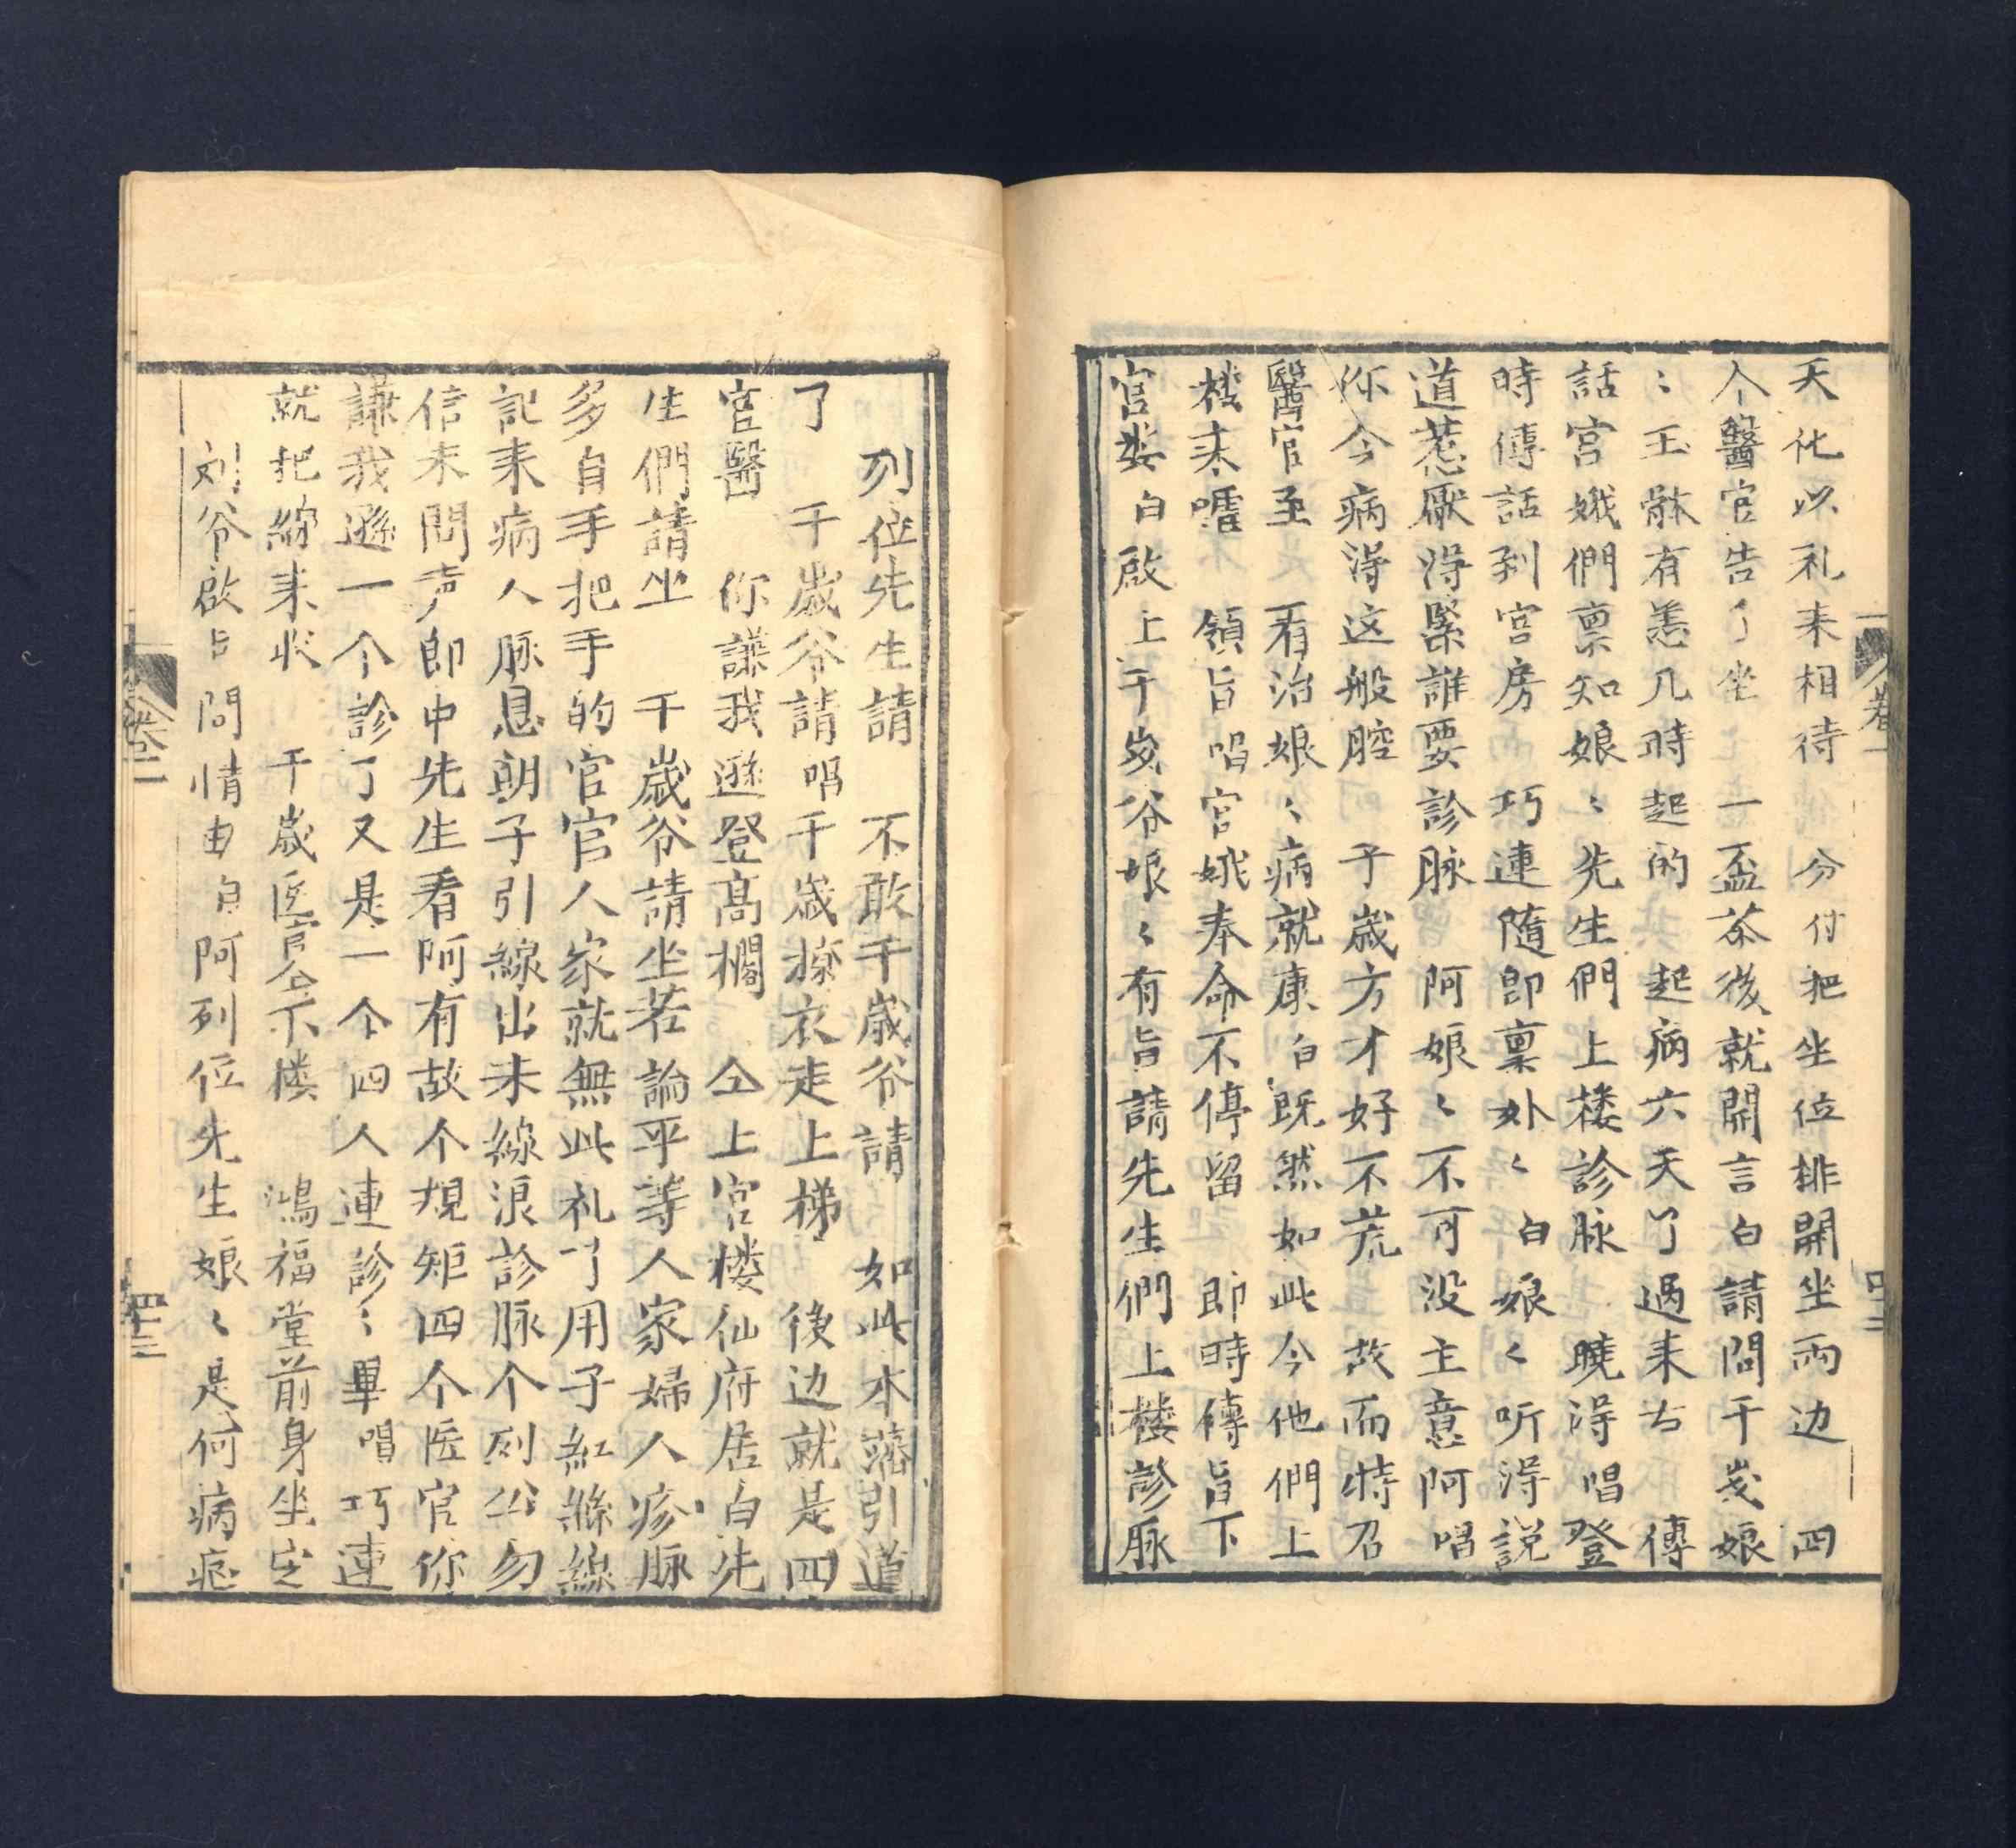 天化以礼耒相待　分付把坐位排開坐両边　四
个醫官告了坐　一盃茶後就開言白請問千歲娘
〻玉骵有恙几時起的　起病六天了過耒　傳
話宮娥們禀知娘〻先生們上楼診脉　曉得唱登
時傳話到宮房　巧連隨即禀处〻　白娘〻听得説
道惹厭得緊誰要診脉　阿娘〻不可没主意阿唱
你今病得这般腔　千歲方才好不荒　故而特召
醫官至　看治娘〻病就康　白既然如此今他們上
楼耒嚄　領旨唱宮娥奉命不停留　即時傳旨下
宮樓白啟上千歲爷娘〻有旨請先生們上楼診脉
列位先生請　不敢千歲爷請　如此本藩引道
了　千歲爷請唱千歲撩衣走上梯　後边就是四
官醫　你謙我遜登髙欄　仝上宮楼仙府居白先
生們請坐　千歲爷請坐若論平等人家婦人疹脉
多自手把手的官官人家就無此礼了用子紅絲線
記耒病人脉息朗子引線出耒線浪診脉个列公勿
信耒問声郎中先生看阿有故个規矩四个医官你
謙我遜一个診了又是一个四人連診〻畢唱巧連
就把線耒收　千歲医官仝下楼　鴻福堂前身坐定
刘爷啟口問情由白阿列位先生娘〻是何病症
卷二
四十三